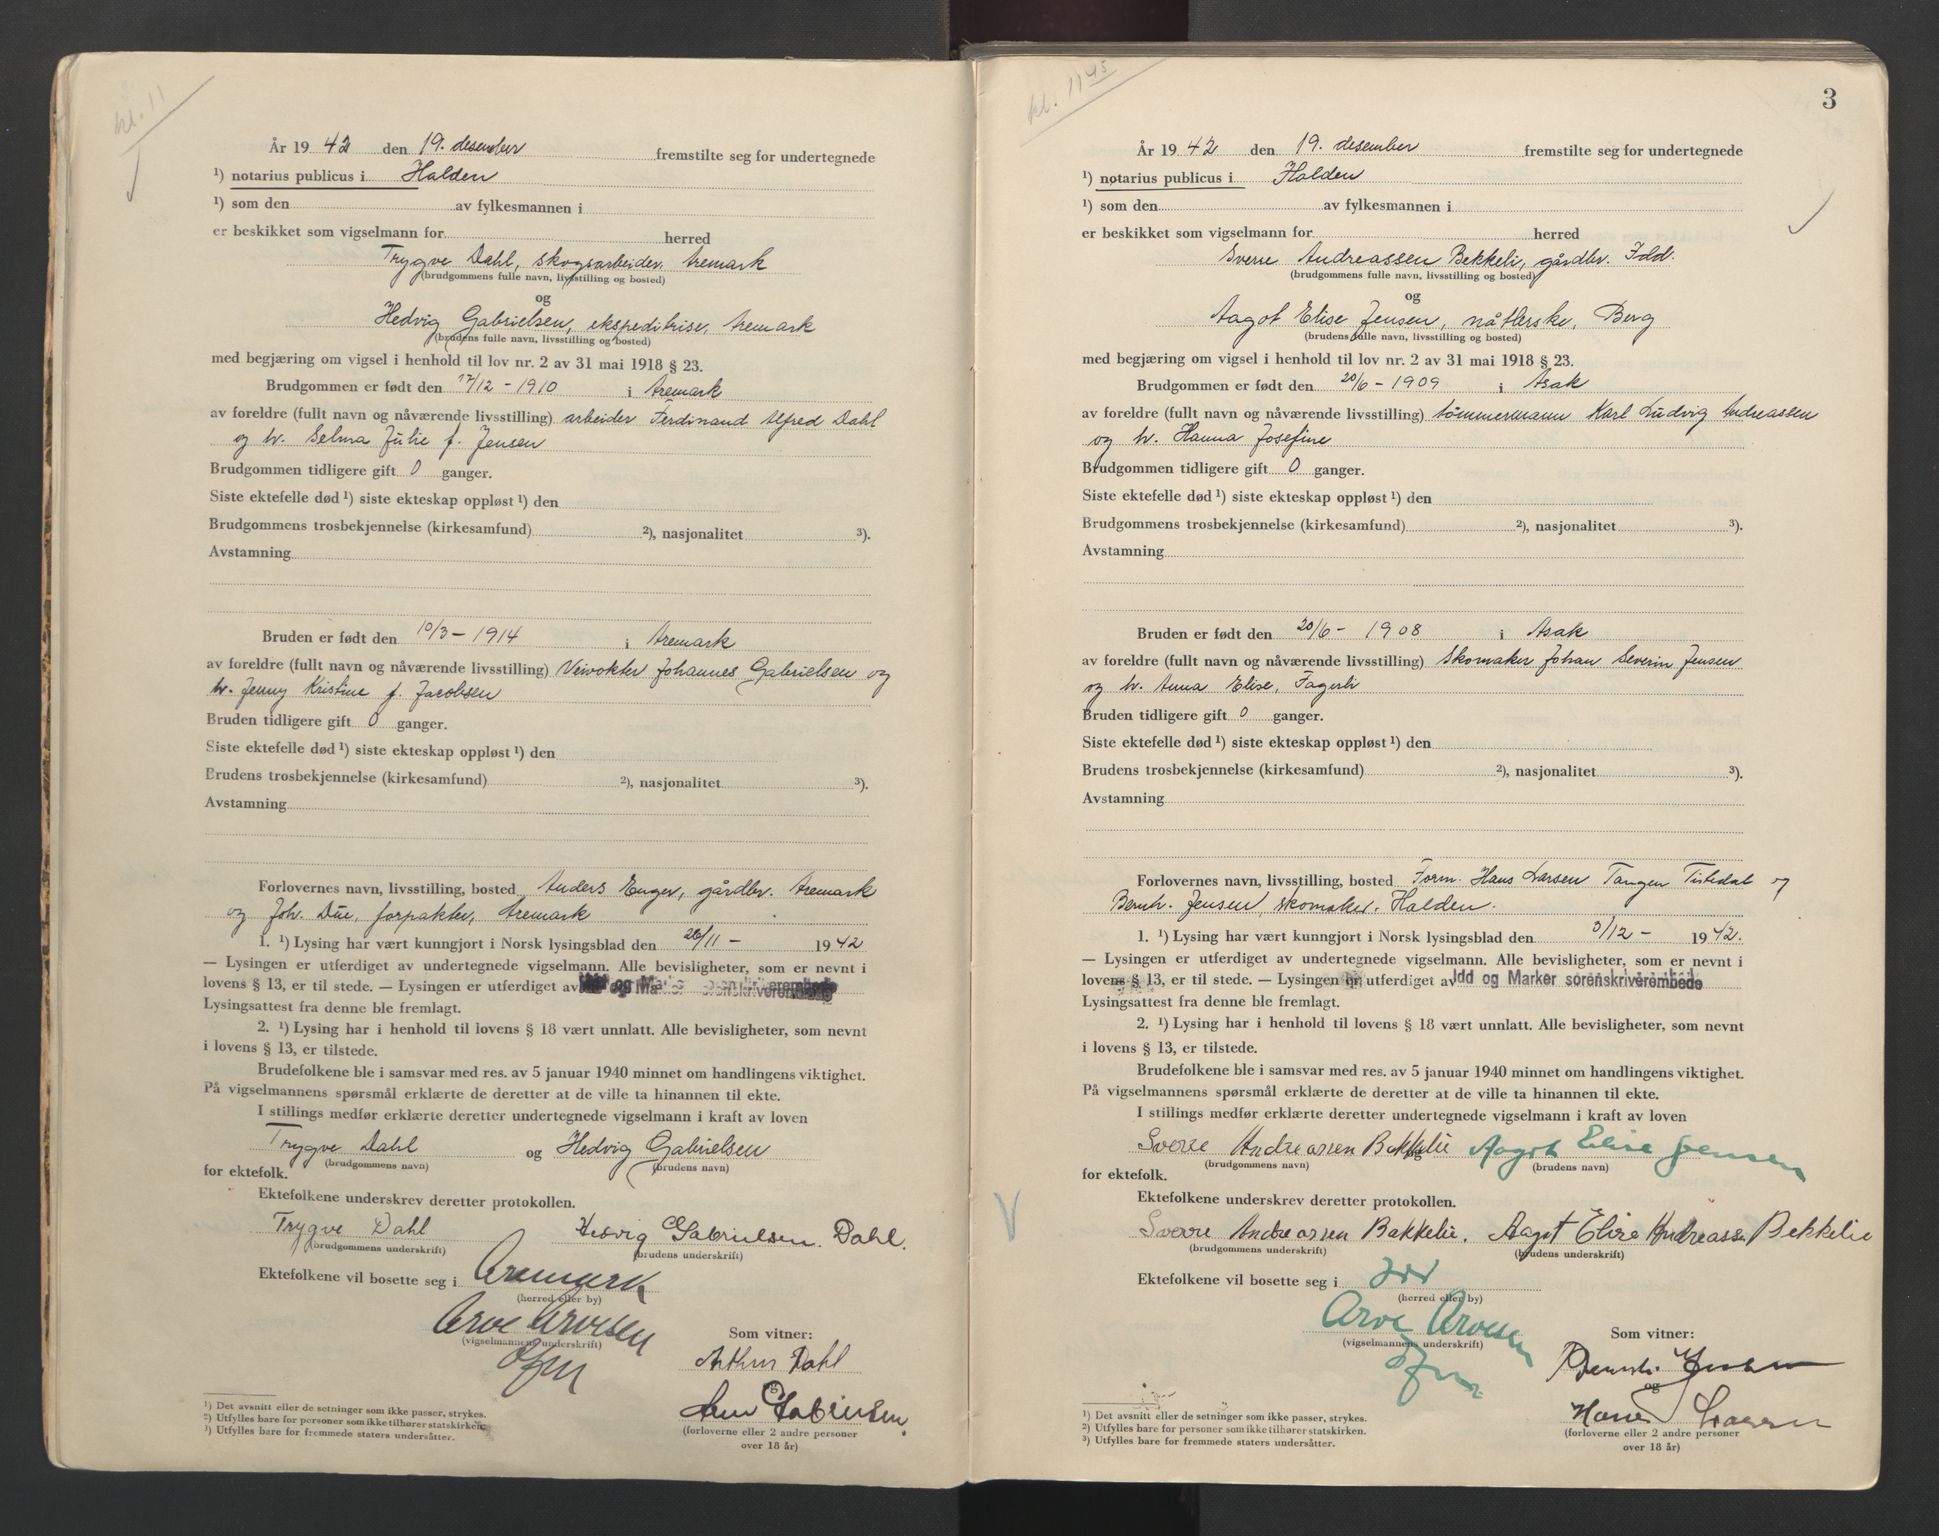 kl. 11
År 1942 den 19. desember fremstilte seg for undertegnede
¹) notarius publicus i Halden
¹) som den av fylkesmannen i
er beskikket som vigselmann for herred
Trygve Dahl, skogsarbeider, Aremark
(brudgommens fulle navn, livsstilling og bosted)
og
Hedvig Gabrielsen, ekspeditrise, Aremark
(brudens fulle navn, livsstilling og bosted)
med begjæring om vigsel i henhold til lov nr. 2 av 31 mai 1918 § 23.
Brudgommen er født den 17/12 - 1910 i Aremark
av foreldre (fullt navn og nåværende livsstilling) arbeider Ferdinand Alfred Dahl
og h. Selma Julie f. Jensen
Brudgommen tidligere gift 0 ganger.
Siste ektefelle død ¹) siste ekteskap oppløst ¹) den
Brudgommens trosbekjennelse (kirkesamfund) ²), nasjonalitet ³).
Avstamning
Bruden er født den 10/3 - 1914 i Aremark
av foreldre (fullt navn og nåværende livsstilling) Veivokter Johannes Gabrielsen og
h. Jenny Kristine f. Jacobsen
Bruden tidligere gift 0 ganger.
Siste ektefelle død ¹) siste ekteskap oppløst ¹) den
Brudens trosbekjennelse (kirkesamfund) ²), nasjonalitet ³).
Avstamning
Forlovernes navn, livsstilling, bosted Anders Enger, gårdbr. Aremark
og Joh. Due, forpakter, Aremark
1. ¹) Lysing har vært kunngjort i Norsk lysingsblad den 26/11 - 1942
— Lysingen er utferdiget av undertegnede vigselmann. Alle bevisligheter, som er nevnt i
lovens § 13, er til stede. — Lysingen er utferdiget av Idd og Marker sorenskriverembede
Lysingsattest fra denne ble fremlagt.
2. ¹) Lysing har i henhold til lovens § 18 vært unnlatt. Alle bevisligheter, som nevnt
i lovens § 13, er tilstede.
Brudefolkene ble i samsvar med res. av 5 januar 1940 minnet om handlingens viktighet.
På vigselmannens spørsmål erklærte de deretter at de ville ta hinannen til ekte.
I stillings medfør erklærte deretter undertegnede vigselmann i kraft av loven
Trygve Dahl og Hedvig Gabrielsen
(brudgommens navn) (brudens navn)
for ektefolk.
Ektefolkene underskrev deretter protokollen.
Trygve Dahl Hedvig Gabrielsen Dahl.
(brudgommens underskrift) (brudens underskrift)
Ektefolkene vil bosette seg i Aremark
(herred eller by)
Arve Arvesen
(vigselmannens underskrift)
Som vitner:
Arthur Dahl
og
Gabrielsen.
(forloverne eller 2 andre personer
over 18 år)
¹) Det avsnitt eller de setninger som ikke passer, strykes.
²) Utfylles bare for personer som ikke tilhører statskirken.
³) Utfylles bare for fremmede staters undersåtter.
kl. 11 45
3
År 1942 den 19. desember fremstilte seg for undertegnede
¹) notarius publicus i Halden
¹) som den av fylkesmannen i
er beskikket som vigselmann for herred
Sverre Andreassen Bekkeli, gårdbr. Idd.
(brudgommens fulle navn, livsstilling og bosted)
og
Aagot Elise Jensen, nåtlerske, Berg
(brudens fulle navn, livsstilling og bosted)
med begjæring om vigsel i henhold til lov nr. 2 av 31 mai 1918 § 23.
Brudgommen er født den 20/6 - 1909 i Asak
av foreldre (fullt navn og nåværende livsstilling) tømmermann Karl Ludvig Andreassen
og h. Hanna Josefine
Brudgommen tidligere gift 0 ganger.
Siste ektefelle død ¹) siste ekteskap oppløst ¹) den
Brudgommens trosbekjennelse (kirkesamfund) ²), nasjonalitet ³).
Avstamning
Bruden er født den 20/6 - 1908 i Asak
av foreldre (fullt navn og nåværende livsstilling) Skomaker Johan Severin Jensen
og h. Anna Elise, Fagerli
Bruden tidligere gift 0 ganger.
Siste ektefelle død ¹) siste ekteskap oppløst ¹) den
Brudens trosbekjennelse (kirkesamfund) ²), nasjonalitet ³).
Avstamning
Forlovernes navn, livsstilling, bosted Form. Hans Larsen Tangen Tistedal og
Bernh. Jensen, skomaker. Halden.
1. ¹) Lysing har vært kunngjort i Norsk lysingsblad den 3/12 - 1942.
— Lysingen er utferdiget av undertegnede vigselmann. Alle bevisligheter, som er nevnt i
lovens § 13, er til stede. — Lysingen er utferdiget av Idd og Marker sorenskriverembede
Lysingsattest fra denne ble fremlagt.
2. ¹) Lysing har i henhold til lovens § 18 vært unnlatt. Alle bevisligheter, som nevnt
i lovens § 13, er tilstede.
Brudefolkene ble i samsvar med res. av 5 januar 1940 minnet om handlingens viktighet.
På vigselmannens spørsmål erklærte de deretter at de ville ta hinannen til ekte.
I stillings medfør erklærte deretter undertegnede vigselmann i kraft av loven
Sverre Andreassen Bekkelie Aagot Elise Jensen
(brudgommens navn) og (brudens navn)
for ektefolk.
Ektefolkene underskrev deretter protokollen.
Sverre Andreassen Bekkelie. Aagot Elise Andreassen Bekkelie
(brudgommens underskrift) (brudens underskrift)
Ektefolkene vil bosette seg i Idd
(herred eller by)
Arve Arvesen
(vigselmannens underskrift)
Som vitner:
Bernh. Jensen
og
Hans Larsen
(forloverne eller 2 andre personer
over 18 år)
¹) Det avsnitt eller de setninger som ikke passer, strykes.
²) Utfylles bare for personer som ikke tilhører statskirken.
³) Utfylles bare for fremmede staters undersåtter.